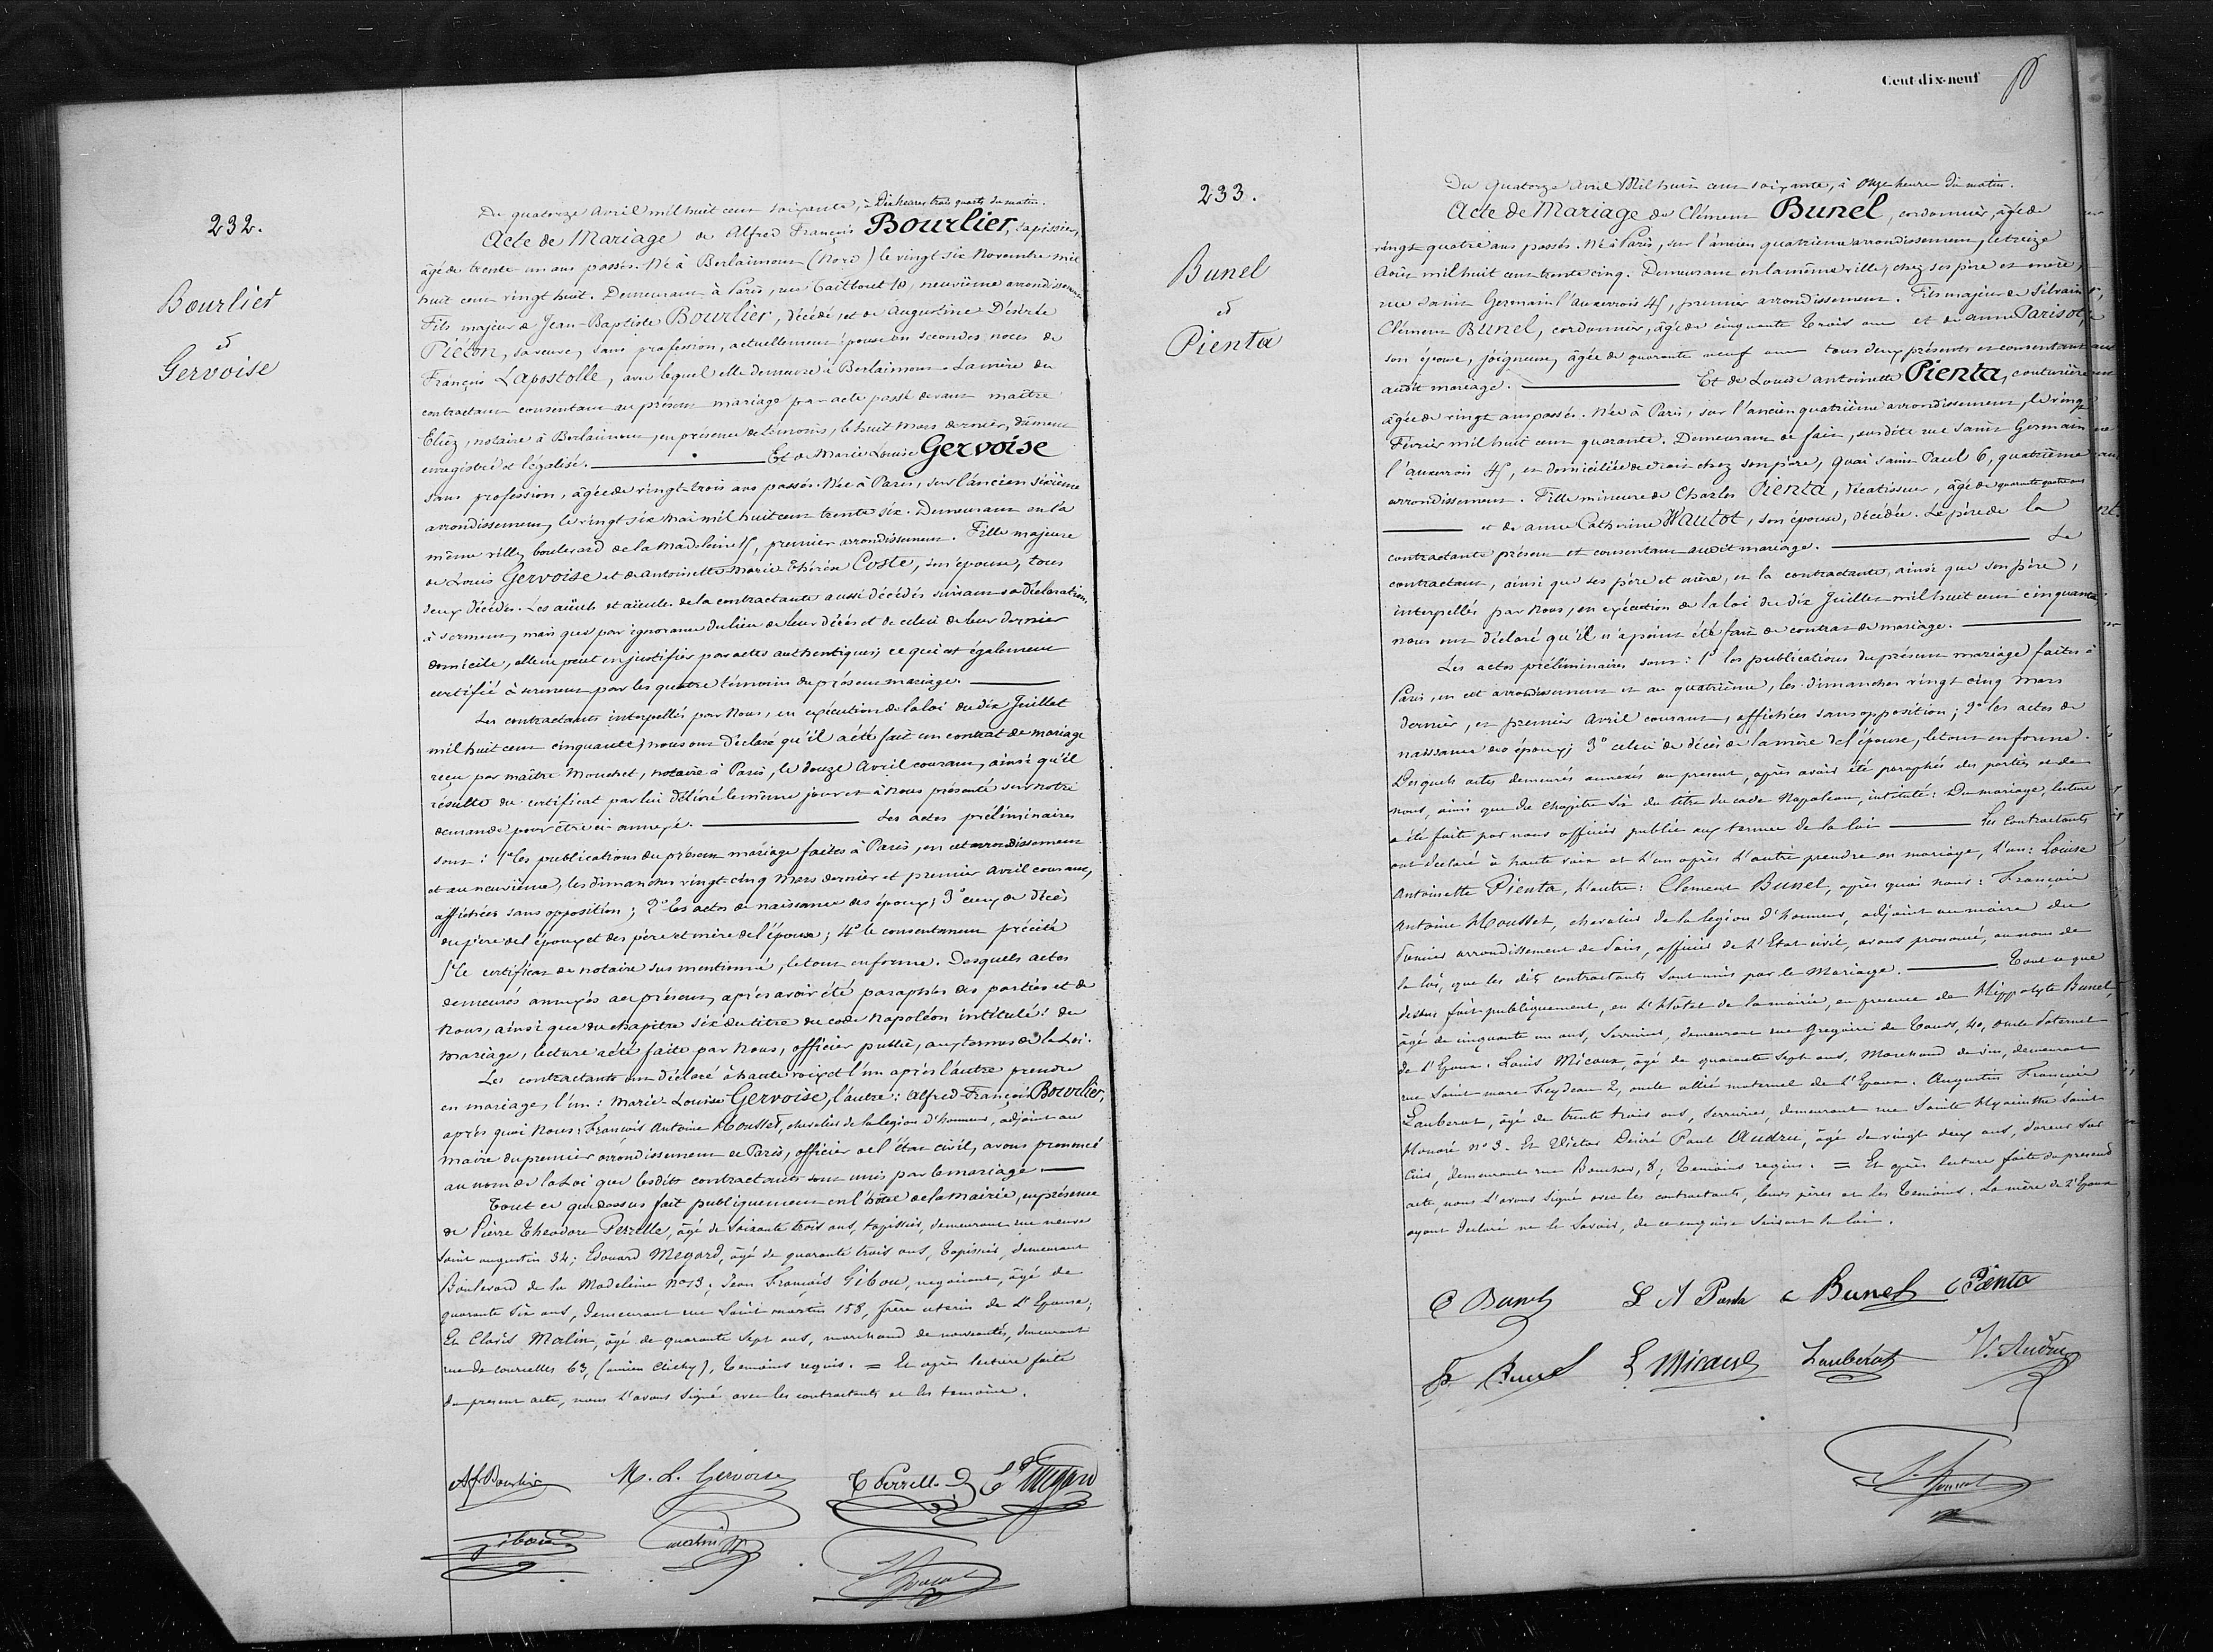 232.
Bourlier
et
Gervoise
Du quatorze avril mil huit cent soixante, à Dix heures trois quarts du matin.
Acte de Mariage de Alfred François Bourlier, tapissier,
âgé de trente un ans passés. Né à Berlaimont (Nord) le vingt six Novembre mil
huit cent vingt huit. Demeurant à Paris, rue Taitbout 10, neuvième arrondissement
Fils majeur de Jean-Baptiste Bourlier, décédé, et de Augustine Désirée
Piéton, sa veuve, sans profession, actuellement épouse en secondes noces de
François Lapostolle, avec lequel elle demeure à Berlaimont. La mère du
contractant consentant au présent mariage par acte passé devant maître
Eliez, notaire à Berlaimont, en présence de témoins, le huit Mars dernier, dûment
enregistré et légalisé. Et de Marie Louise Gervoise
sans profession, âgée de vingt-trois ans passés. Née à Paris, sur l'ancien sixième
arrondissement, le vingt six mai mil huit cent trente six. Demeurant en la
même ville, boulevard de la Madeleine 15, premier arrondissement. Fille majeure
de Louis Gervoise et de Antoinette Marie Thérèse Coste, son épouse, tous
deux décédés. Les aïeuls et aïeules de la contractante aussi décédés suivant sa déclaration
à serment, mais que par ignorance du lieu de leur décès et de celui de leur dernier
domicile, elle ne peut en justifier par actes authentiques; ce qui est également
certifié à serment par les quatre témoins du présent mariage.
Les contractants interpellés par Nous, en exécution de la loi du dix Juillet
mil huit cent cinquante, nous ont déclaré qu'il a été fait un contrat de mariage
reçu par maître Mouchet, notaire à Paris, le douze Avril courant, ainsi qu'il
résulte du certificat par lui délivré le même jour et à Nous présenté sur notre
demande pour être ci-annexé. Les actes préliminaires
sont : 1° les publications du présent mariage faites à Paris, en cet arrondissement
et au neuvième, les dimanches vingt-cinq Mars dernier et premier Avril courant,
affichées sans opposition; 2° les actes de naissance des époux; 3° ceux de décès
du père de l'époux et des père et mère de l'épouse; 4° le consentement précité
5° le certificat de notaire sus mentionné, le tout en forme. Desquels actes
demeurés annexés au présent, après avoir été paraphés des parties et de
Nous, ainsi que du chapitre six du titre du code Napoléon intitulé: du
mariage, lecture a été faite par Nous, officier public, aux termes de la Loi.
Les contractants ont déclaré à haute voix et l'un après l'autre prendre
en mariage, l'un : Marie-Louise Gervoise, l'autre : Alfred-François Bourlier,
après quoi Nous : François Antoine Housset, chevalier de la légion d'honneur, adjoint au
maire du premier arrondissement de Paris, officier de l'état civil, avons prononcé
au nom de la Loi que lesdits contractants sont unis par le mariage.
Tout ce que dessus fait publiquement en l'hôtel de la mairie, en présence
de Pierre Théodore Perrelle, âgé de soixante trois ans, tapissier, demeurant rue neuve
saint augustin 34; Edouard Megard, âgé de quarante trois ans, tapissier, demeurant
Boulevard de la Madeleine no 13; Jean François Gibou, négociant, âgé de
quarante six ans, demeurant rue Saint martin 158, frère uterin de L'Epouse;
Et Clovis Malin, âgé de quarante sept ans, marchand de nouveautés, demeurant
rue de courcelles 63, (ancien Clichy), temoins requis. = Et après lecture faite
du present acte, nous L'avons Signé avec les contractants et les temoins.
Af Bourlier M. L. Gervoise T Perrelle Ed Megard
Gibou
Cent-dix-neuf
233.
Bunel
et
Pienta
Du Quatorze Avril Mil huit cent soixante, à Onze heures du matin.
Acte de Mariage de Clément Bunel, cordonnier, âgé de
vingt-quatre ans passés. Né à Paris, sur l'ancien quatrième arrondissement, le treize
Août mil huit cent trente cinq. Demeurant en la même ville, chez ses père et mère,
rue Saint Germain l'auxerrois 45, premier arrondissement. Fils majeur de Silvain
Clément Bunel, cordonnier, âgé de cinquante trois ans et de anne Parisot,
son épouse, joigneuse, âgée de quarante neuf ans tous deux présents et consentant
audit mariage. Et de Louise antoinette Pienta, couturière
âgée de vingt ans passés. Née à Paris, sur l'ancien quatrième arrondissement, le vingt
Février mil huit cent quarante. Demeurant de fait, susdite rue Saint Germain
l'auxerrois 45, et domiciliée de droit chez son père, Quai Saint Paul 6, quatrième
arrondissement. Fille mineure de Charles Pienta, décatisseur, âgé de quarante quatre ans
et de anne Catherine Wautot, son épouse, décédée. Le père de la
contractante présent et consentant audit mariage. Le
contractant, ainsi que ses père et mère, et la contractante, ainsi que son père,
interpellés par Nous, en exécution de la loi du dix Juillet mil huit cent cinquante
nous ont déclaré qu'il n'a point été fait de contrat de mariage.
Les actes préliminaires sont : 1° les publications du présent mariage faites à
Paris, en cet arrondissement et au quatrième, les dimanches vingt cinq Mars
dernier, et premier Avril courant, affichées sans opposition; 2° les actes de
naissance des époux; 3° celui de décès de la mère de l'épouse, le tout en forme.
Desquels actes demeurés annexés au present, après avoir été paraphés des parties et de
nous, ainsi que du chapitre Six du titre du code Napoleon, intitulé : Du mariage, lecture
a été faite par nous officier public aux termes de la loi Les Contractants
ont declaré à haute voix et L'un après L'autre prendre en mariage, L'un : Louise
Antoinette Pienta, L'autre : Clement Bunel, après quoi nous : François
Antoine Housset, chevalier de la legion d'honneur, adjoint au maire du
Premier arrondissement de Paris, officier de L'Etat civil, avons prononcé, au nom de
la loi, que les dits contractants Sont unis par le Mariage. Tout ce que
dessus fait publiquement, en L'Hôtel de la mairie, en presence de Hippolyte Bunel,
âgé de cinquante un ans, Serrurier, demeurant rue Gregoire de Tours, 40, oncle Paternel
de L'Epoux. Louis Micaux, âgé de quarante Sept ans, Marchand de vin, demeurant
rue Saint marc Feydeau 2, oncle allié maternel de L'Epoux. Augustin François
Lauberat, âgé de trente trois ans, Serrurier, demeurant rue Sainte Hyacinthe Saint
Honoré no 3. Et Victor Desiré Paul Audru, âgé de vingt deux ans, doreur sur
Cuir, demeurant rue Boucher, 8; Temoins requis. = Et après lecture faite du present
acte, nous L'avons Signé avec les contractants, leurs pères et les Temoins. La mère de l'Epoux
ayant declaré ne le Savoir, de ce enquise Suivant la loi.
C Bunel L A Pienta Bunel C Pienta
Bunel L Micaux Lauberat V. Audru